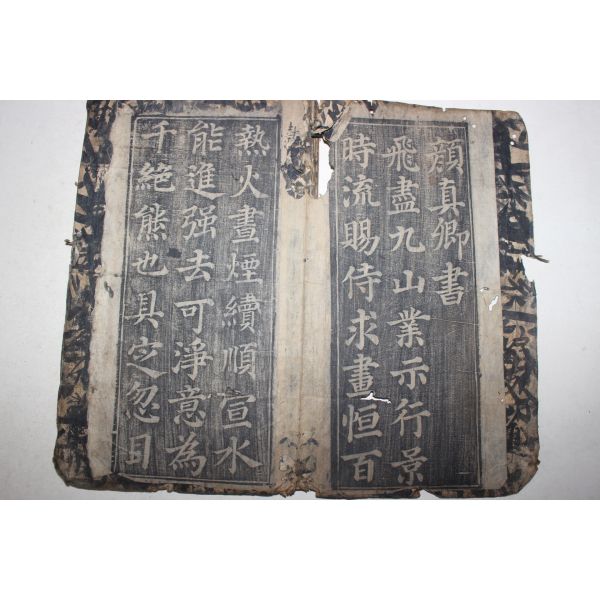 顔真卿書
飛盡九山業示行景
時流賜侍求畫恒百
熱火晝煙續順宣水
能進强去可淨意為
千絶熊也具定忽目